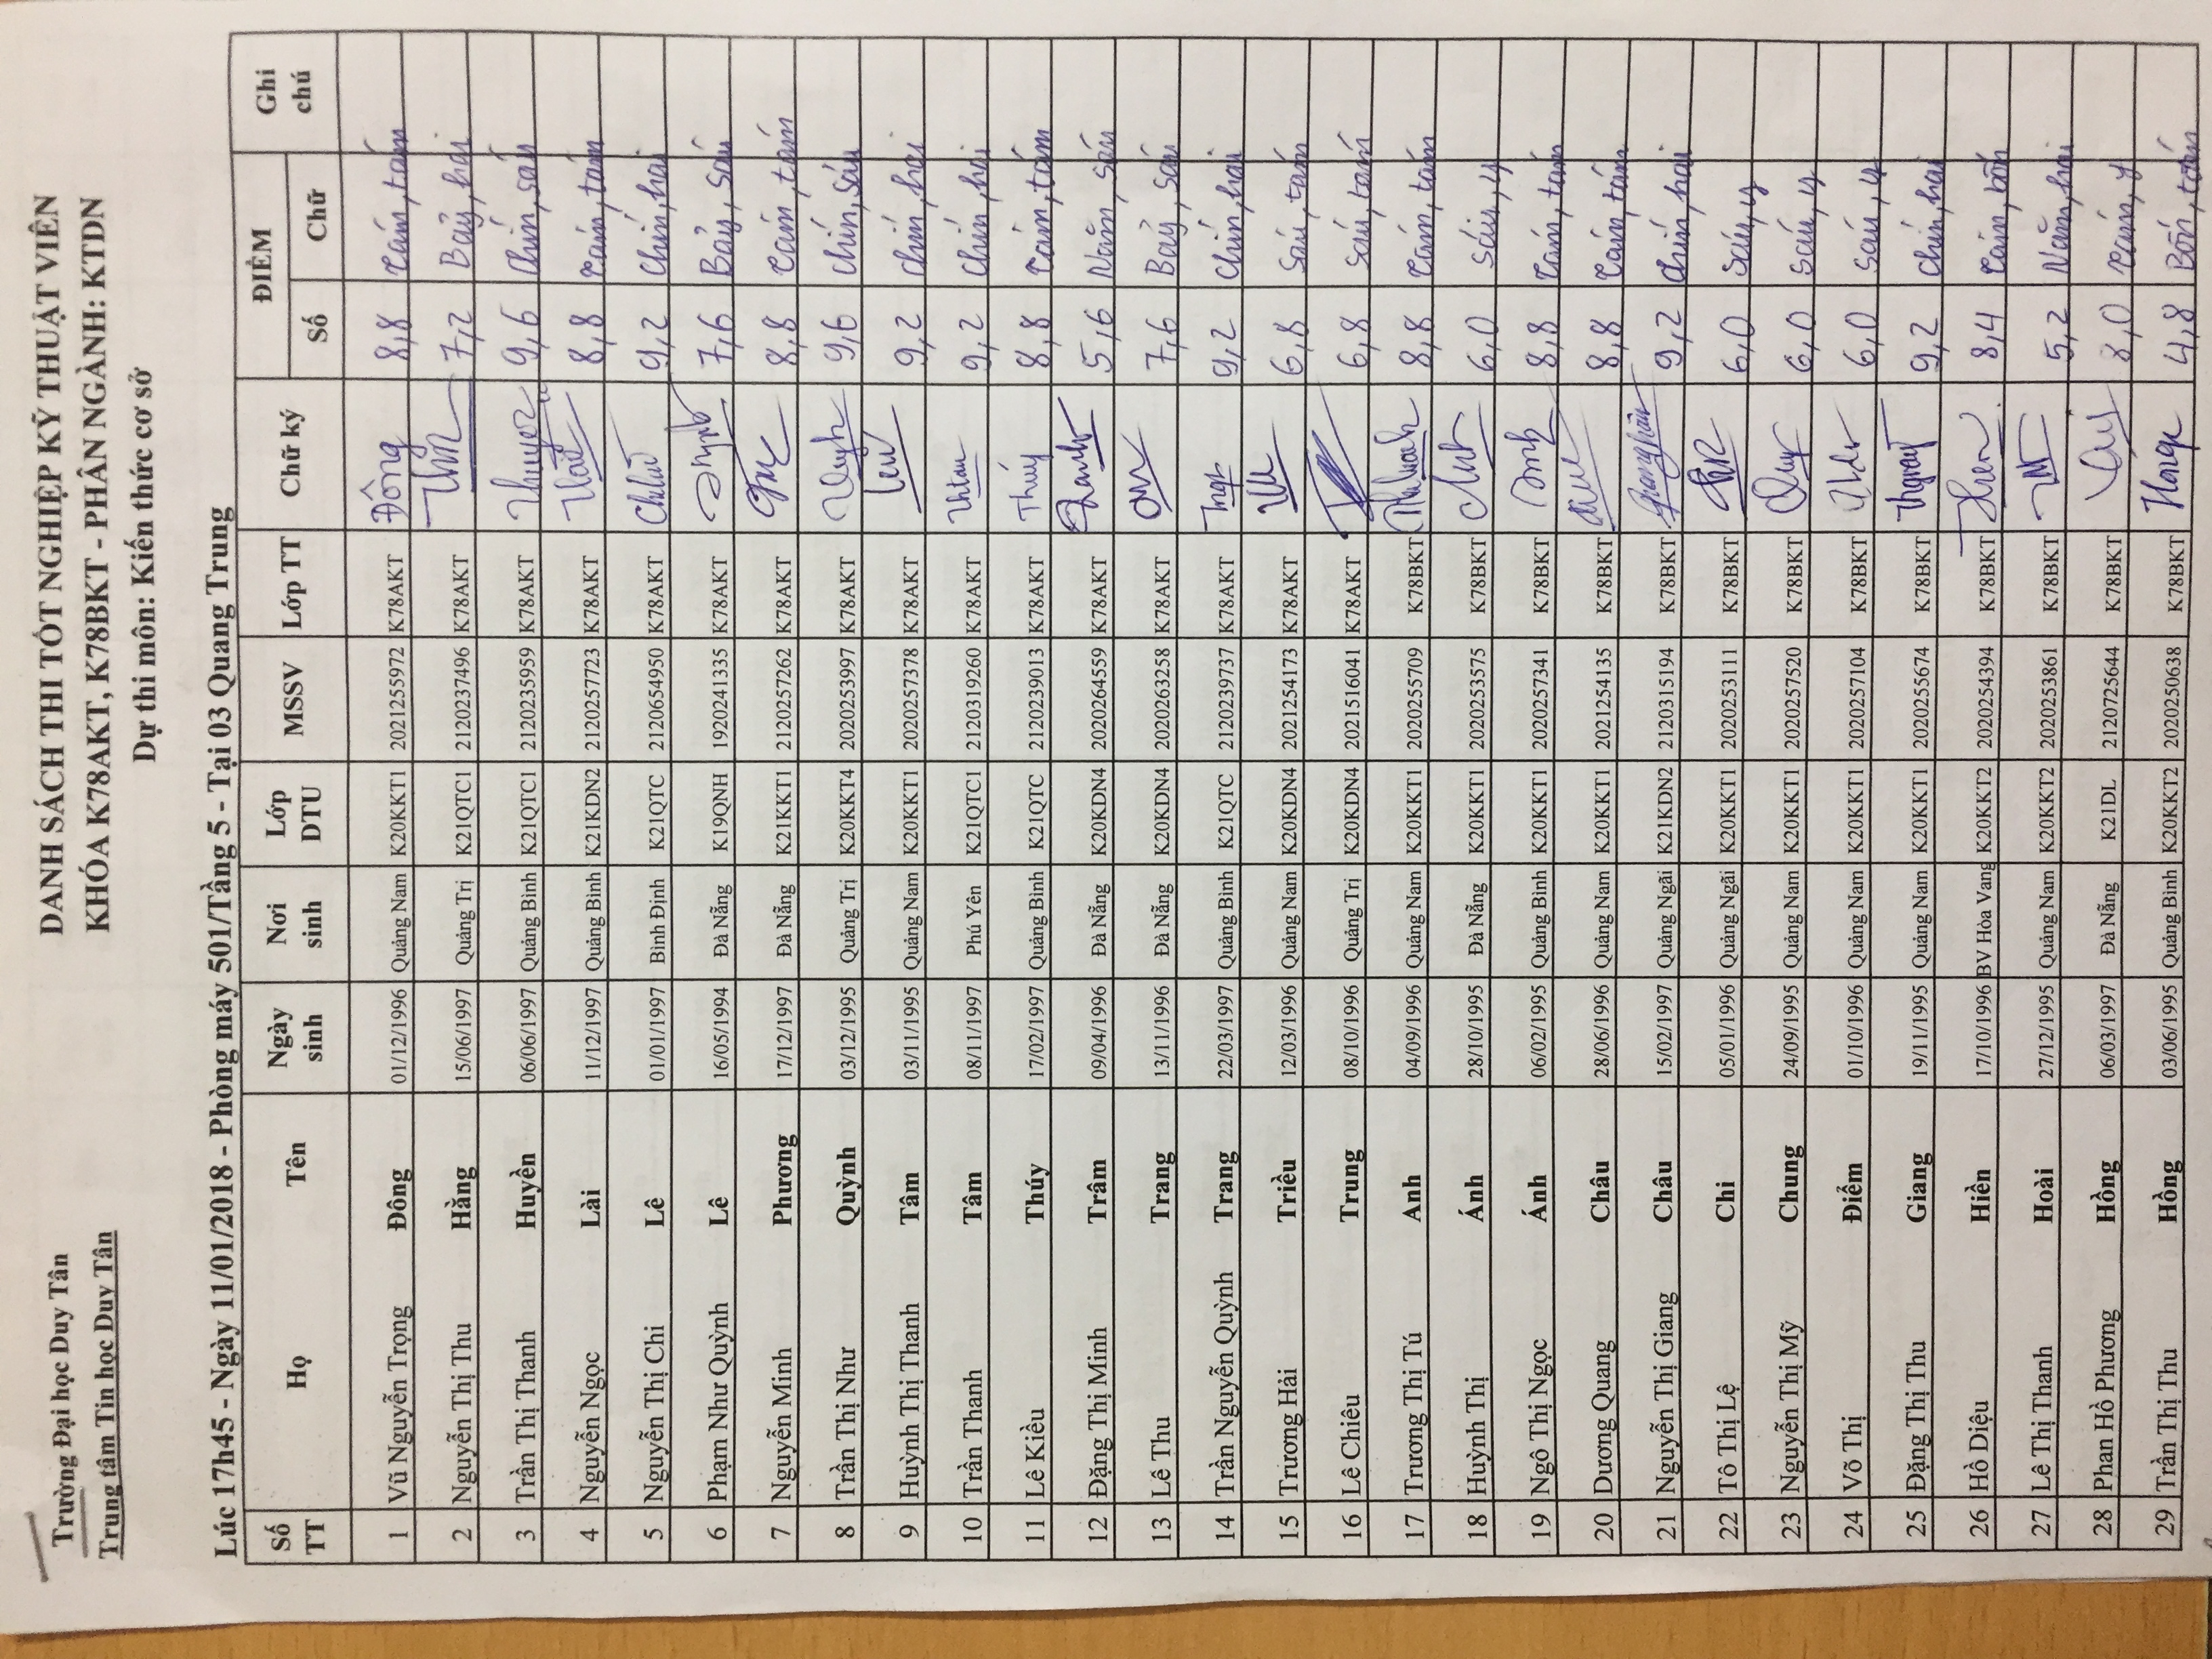 Trường Đại học Duy Tân
Trung tâm Tin học Duy Tân
DANH SÁCH THI TỐT NGHIỆP KỸ THUẬT VIÊN
KHÓA K78AKT, K78BKT - PHÂN NGÀNH: KTDN
Dự thi môn: Kiến thức cơ sở
Lúc 17h45 - Ngày 11/01/2018 - Phòng máy 501/Tầng 5 - Tại 03 Quang Trung
Số TT Họ Tên Ngày sinh Nơi sinh Lớp DTU MSSV Lớp TT Chữ ký ĐIỂM Số Chữ Ghi chú
1 Vũ Nguyễn Trọng Đông 01/12/1996 Quảng Nam K20KKT1 2021255972 K78AKT Đông 8,8 Tám, tám
2 Nguyễn Thị Thu Hằng 15/06/1997 Quảng Trị K21QTC1 2120237496 K78AKT 7,2 Bảy, hai
3 Trần Thị Thanh Huyền 06/06/1997 Quảng Bình K21QTC1 2120235959 K78AKT 9,6 Chín, sáu
4 Nguyễn Ngọc Lài 11/12/1997 Quảng Bình K21KDN2 2120257723 K78AKT 8,8 Tám, tám
5 Nguyễn Thị Chi Lê 01/01/1997 Bình Định K21QTC 2120654950 K78AKT 9,2 Chín, hai
6 Phạm Như Quỳnh Lê 16/05/1994 Đà Nẵng K19QNH 1920241335 K78AKT 7,6 Bảy, sáu
7 Nguyễn Minh Phương 17/12/1997 Đà Nẵng K21KKT1 2120257262 K78AKT 8,8 Tám, tám
8 Trần Thị Như Quỳnh 03/12/1995 Quảng Trị K20KKT4 2020253997 K78AKT 9,6 Chín, sáu
9 Huỳnh Thị Thanh Tâm 03/11/1995 Quảng Nam K20KKT1 2020257378 K78AKT 9,2 Chín, hai
10 Trần Thanh Tâm 08/11/1997 Phú Yên K21QTC1 2120319260 K78AKT 9,2 Chín, hai
11 Lê Kiều Thúy 17/02/1997 Quảng Bình K21QTC 2120239013 K78AKT Thúy 8,8 Tám, tám
12 Đặng Thị Minh Trâm 09/04/1996 Đà Nẵng K20KDN4 2020264559 K78AKT 5,6 Năm, sáu
13 Lê Thu Trang 13/11/1996 Đà Nẵng K20KDN4 2020263258 K78AKT 7,6 Bảy, sáu
14 Trần Nguyễn Quỳnh Trang 22/03/1997 Quảng Bình K21QTC 2120239737 K78AKT 9,2 Chín, hai
15 Trương Hải Triều 12/03/1996 Quảng Nam K20KDN4 2021254173 K78AKT 6,8 Sáu, tám
16 Lê Chiêu Trung 08/10/1996 Quảng Trị K20KDN4 2021516041 K78AKT 6,8 Sáu, tám
17 Trương Thị Tú Anh 04/09/1996 Quảng Nam K20KKT1 2020255709 K78BKT 8,8 Tám, tám
18 Huỳnh Thị Ánh 28/10/1995 Đà Nẵng K20KKT1 2020253575 K78BKT 6,0 Sáu, y
19 Ngô Thị Ngọc Ánh 06/02/1995 Quảng Bình K20KKT1 2020257341 K78BKT 8,8 Tám, tám
20 Dương Quang Châu 28/06/1996 Quảng Nam K20KKT1 2021254135 K78BKT 8,8 Tám, tám
21 Nguyễn Thị Giang Châu 15/02/1997 Quảng Ngãi K21KDN2 2120315194 K78BKT 9,2 Chín, hai
22 Tô Thị Lệ Chi 05/01/1996 Quảng Ngãi K20KKT1 2020253111 K78BKT 6,0 Sáu, y
23 Nguyễn Thị Mỹ Chung 24/09/1995 Quảng Nam K20KKT1 2020257520 K78BKT 6,0 Sáu, y
24 Võ Thị Điểm 01/10/1996 Quảng Nam K20KKT1 2020257104 K78BKT 6,0 Sáu, y
25 Đặng Thị Thu Giang 19/11/1995 Quảng Nam K20KKT1 2020255674 K78BKT 9,2 Chín, hai
26 Hồ Diệu Hiền 17/10/1996 BV Hòa Vang K20KKT2 2020254394 K78BKT 8,4 Tám, bốn
27 Lê Thị Thanh Hoài 27/12/1995 Quảng Nam K20KKT2 2020253861 K78BKT 5,2 Năm, hai
28 Phan Hồ Phương Hồng 06/03/1997 Đà Nẵng K21DL 2120725644 K78BKT 8,0 Tám, y
29 Trần Thị Thu Hồng 03/06/1995 Quảng Bình K20KKT2 2020250638 K78BKT 4,8 Bốn, tám